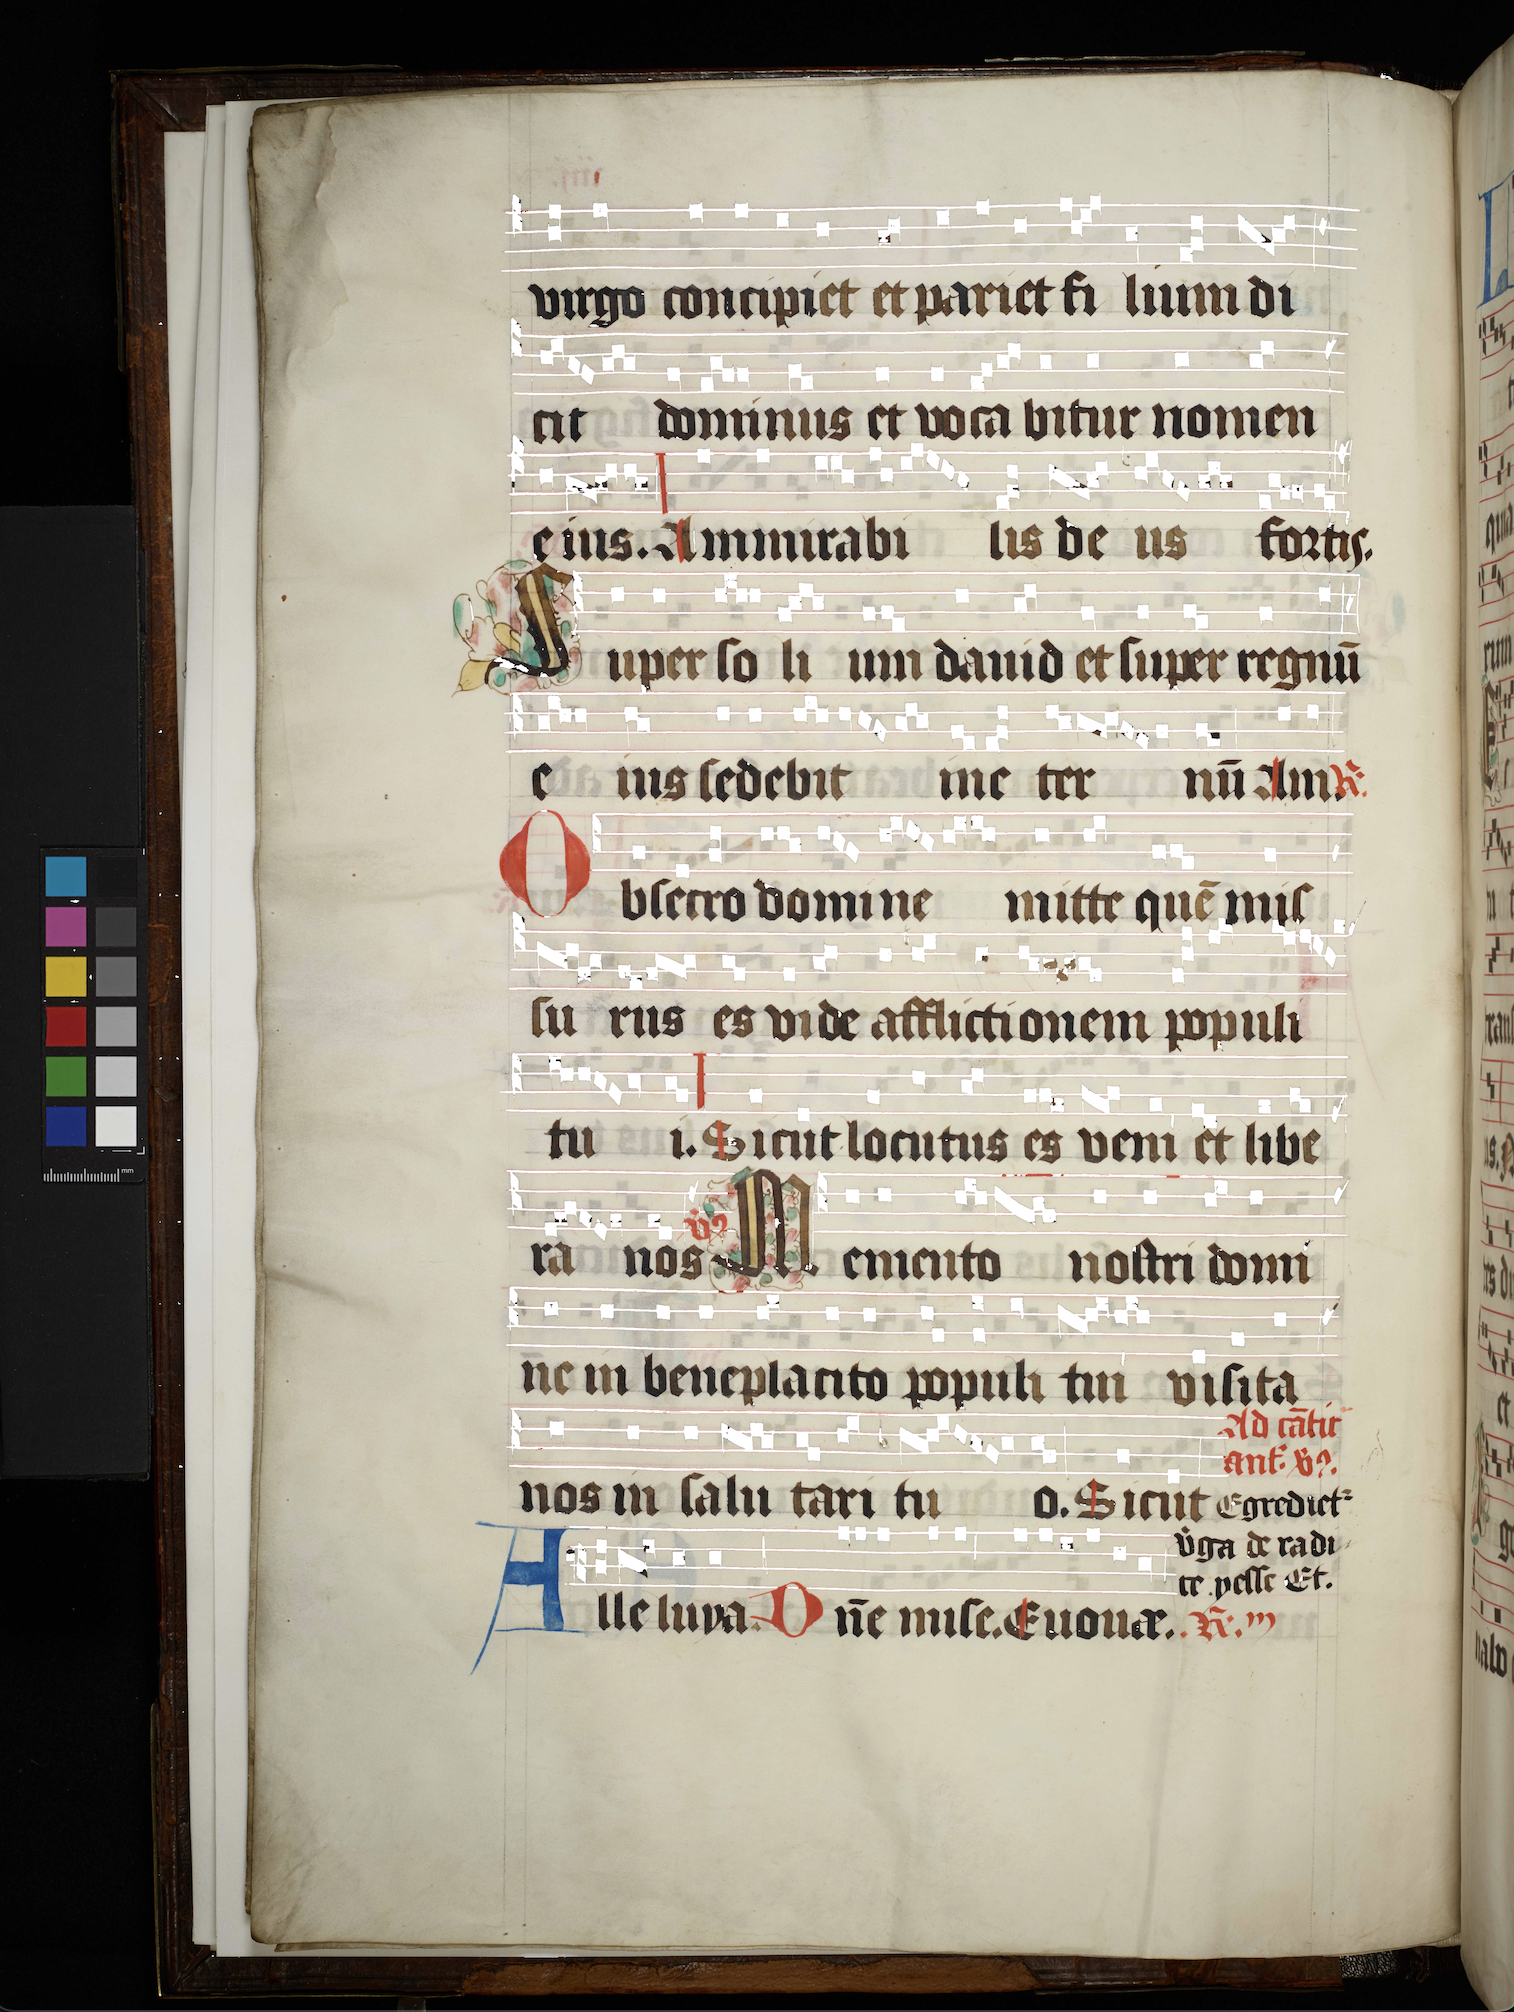 virgo concipiet et pariet fi lium di
cit dominus et voca bitur nomen
eius. Ammirabi lis de us fortis.
Super so li um dauid et super regnū
e ius sedebit in e ter nū Am R.
Obsecro domine mitte quē mis
su rus es vide afflictionem populi
tu i. Sicut locutus es veni et libe
ra nos v̄ Memento nostri domi
n̄e in beneplacito populi tui visita
nos in salu tari tu o. Sicut
Ad cātic
ant. v̄.
Egrediet
v̄ga de radi
ce yesse Et.
Alleluya. D n̄e mise. Euouae.